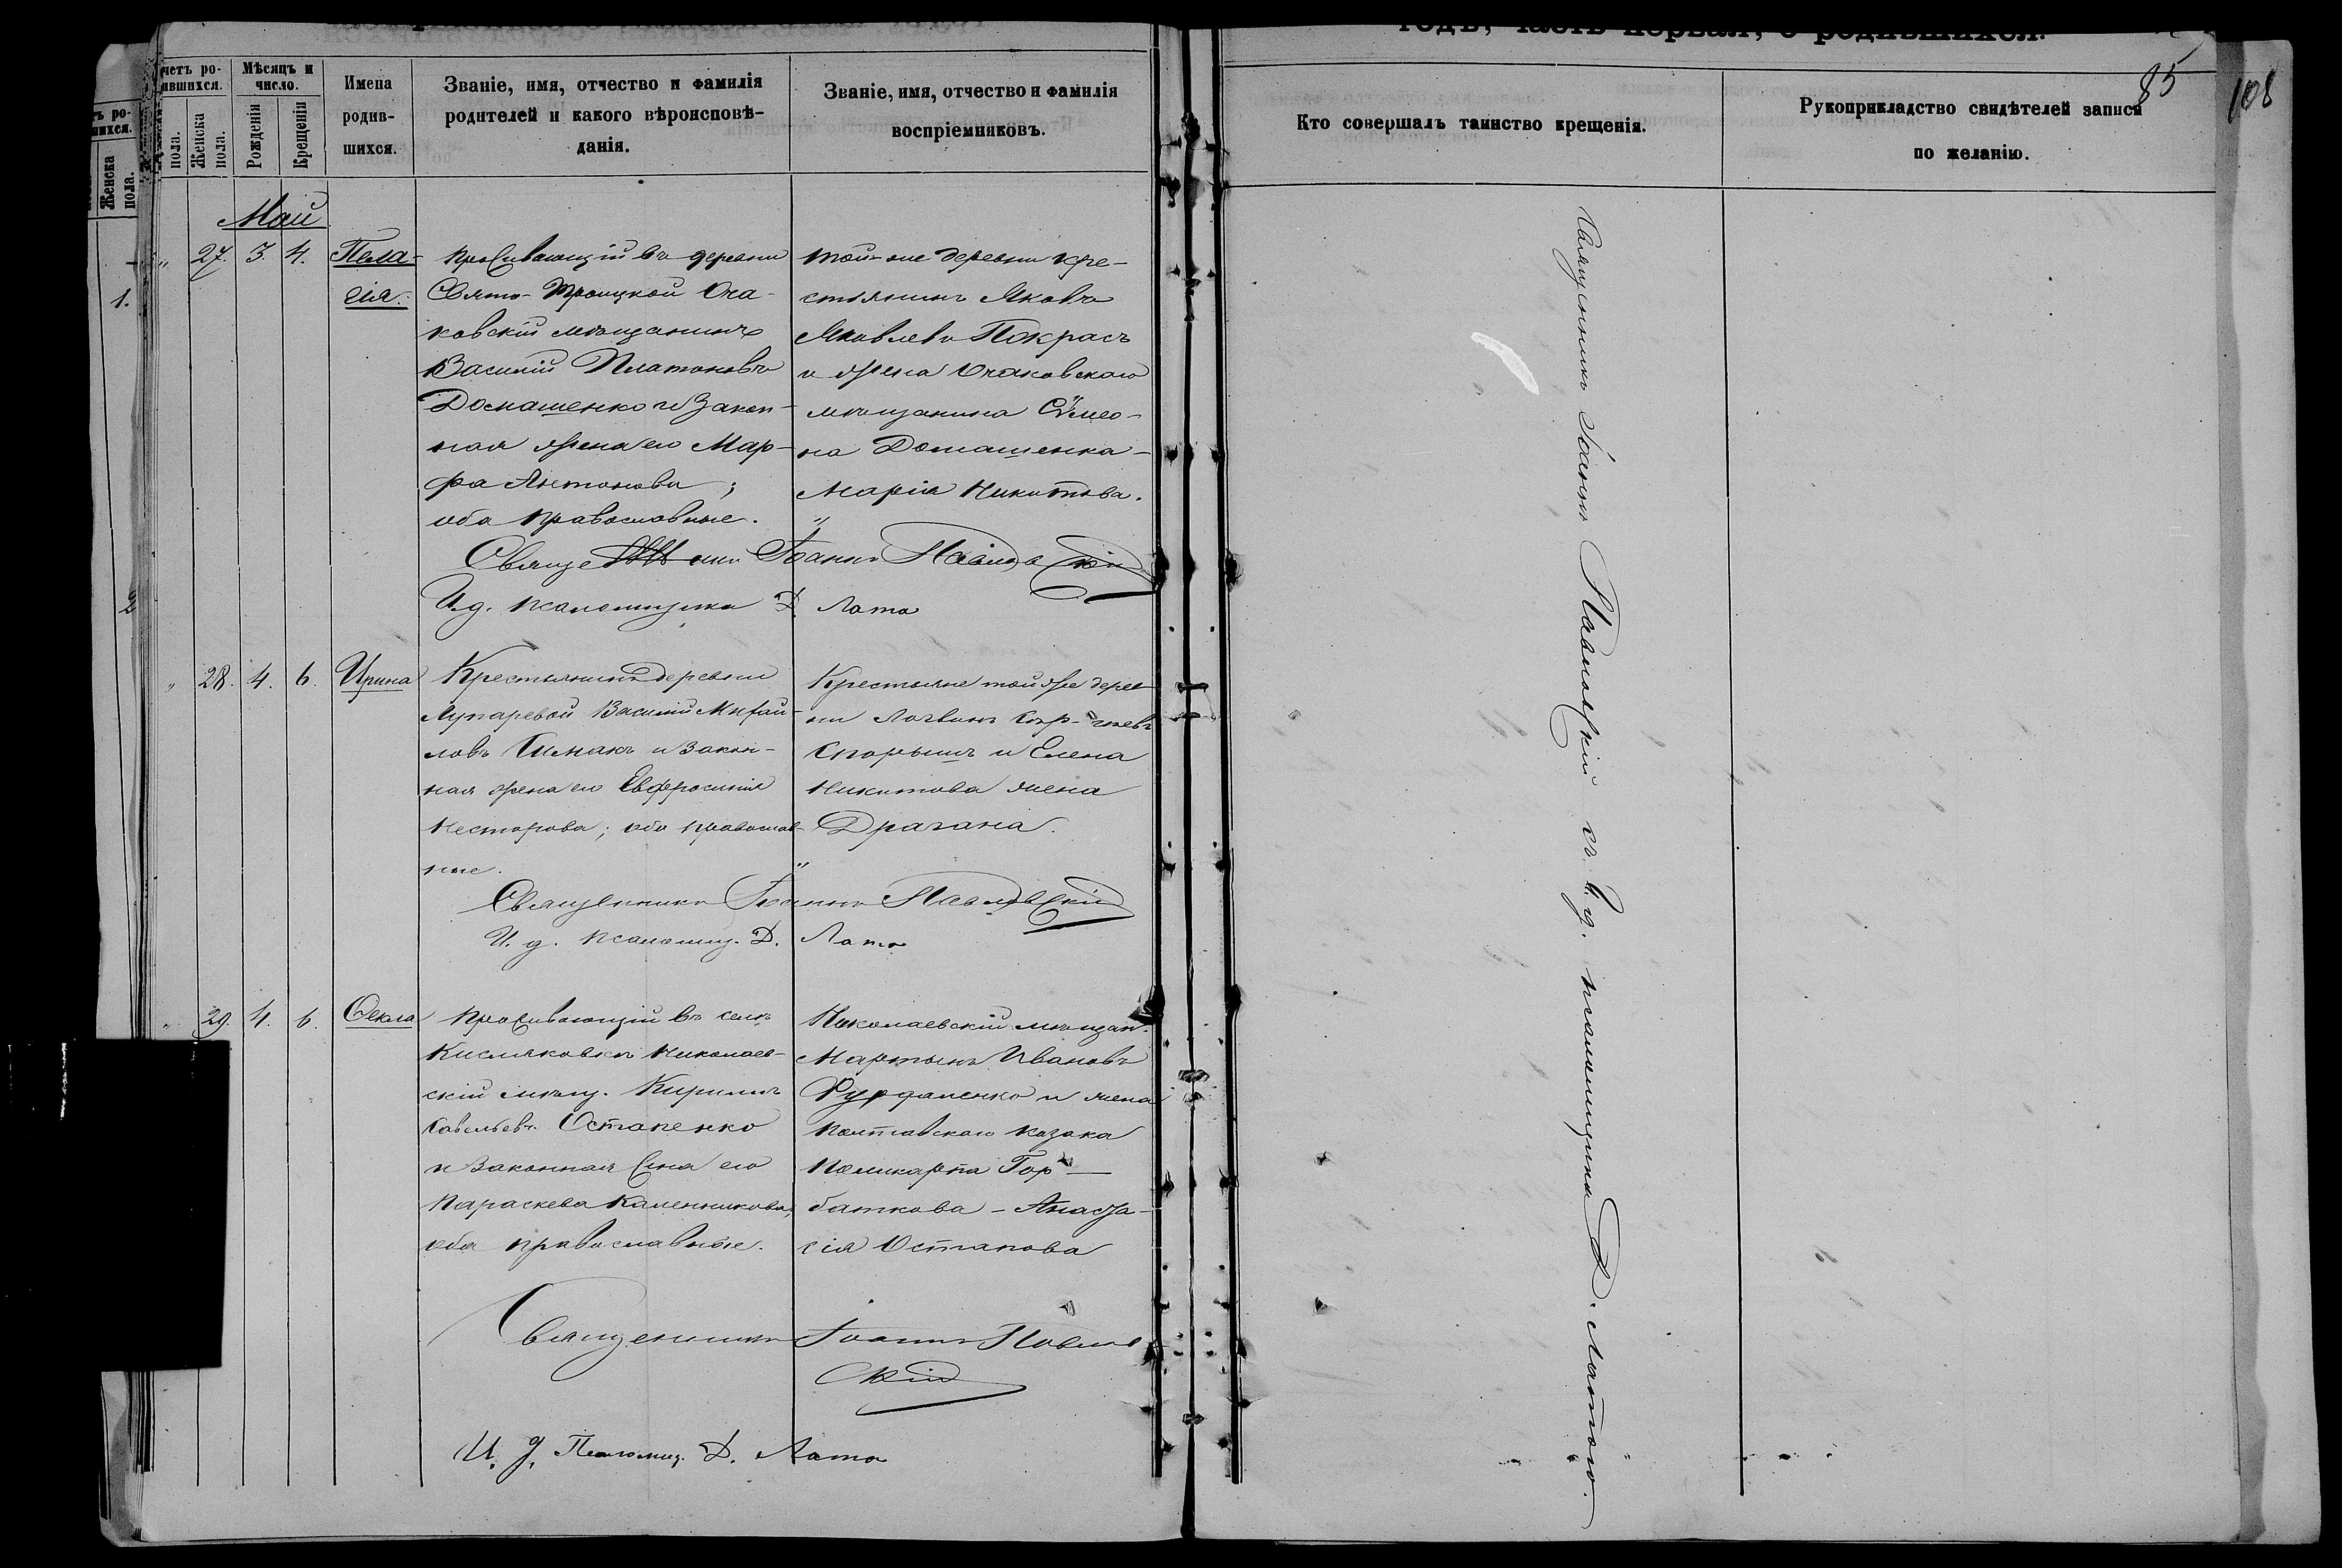 годъ, часть первая, о родившихся.
85
108
Счетъ родившихся.
Мѣсяцъ и число.
Имена родившихся.
Званіе, имя, отчество и фамилія родителей и какого вѣроисповѣданія.
Званіе, имя, отчество и фамилія воспріемниковъ.
пола.
Женска пола.
Рожденія
Крещенія
Кто совершалъ таинство крещенія.
Рукоприкладство свидѣтелей записи по желанію.
Женска пола.
1.
2
Май
" 27. 3. 4. Пела-
гія.
Проживающій въ деревни
Свято-Троицкой Оча-
ковскій мѣщанинъ
Василій Платоновъ
Домашенко и закон-
ная жена его Мар-
фа Антонова;
оба православные.
той-же деревни кре-
стьянинъ Яковъ
Яковлевъ Покрасъ
и жена Очаковскаго
мѣщанина Сѵмео-
на Домашенка-
Марія Никитова.
Священникъ Іоаннъ Павловскій
И. д. псаломщика Д. Лато
" 28. 4. 6. Ирина
Крестьянинъ деревни
Лупаревой Василій Михай-
ловъ Шмакъ и закон-
ная жена его Евфросинія
Несторова; оба православ-
ные.
Крестьяне той же дерев-
ни Логвинъ
Спорышъ и Елена
Никитова жена
Драгана.
Священникъ Іоаннъ Павловскій
И. д. псаломщ. Д. Лато
" 29. 4. 6. Ѳекла
Проживающій въ селѣ
Кисляковкѣ Николаев-
скій мѣщ. Кириллъ
Савельевъ Остапенко
и законная жена его
Параскева Каленикова,
оба православные.
Николаевскій мѣщан.
Мартынъ Ивановъ
Фурдаленко и жена
Полтавскаго казака
Поликарпа Гор-
баткова - Анаста-
сія Остапова
Священникъ Іоаннъ Павлов
скій
И. д. Псаломщ. Д. Лато
Священникъ Іоаннъ Павловскій съ И. д. псаломщика Д. Латого.